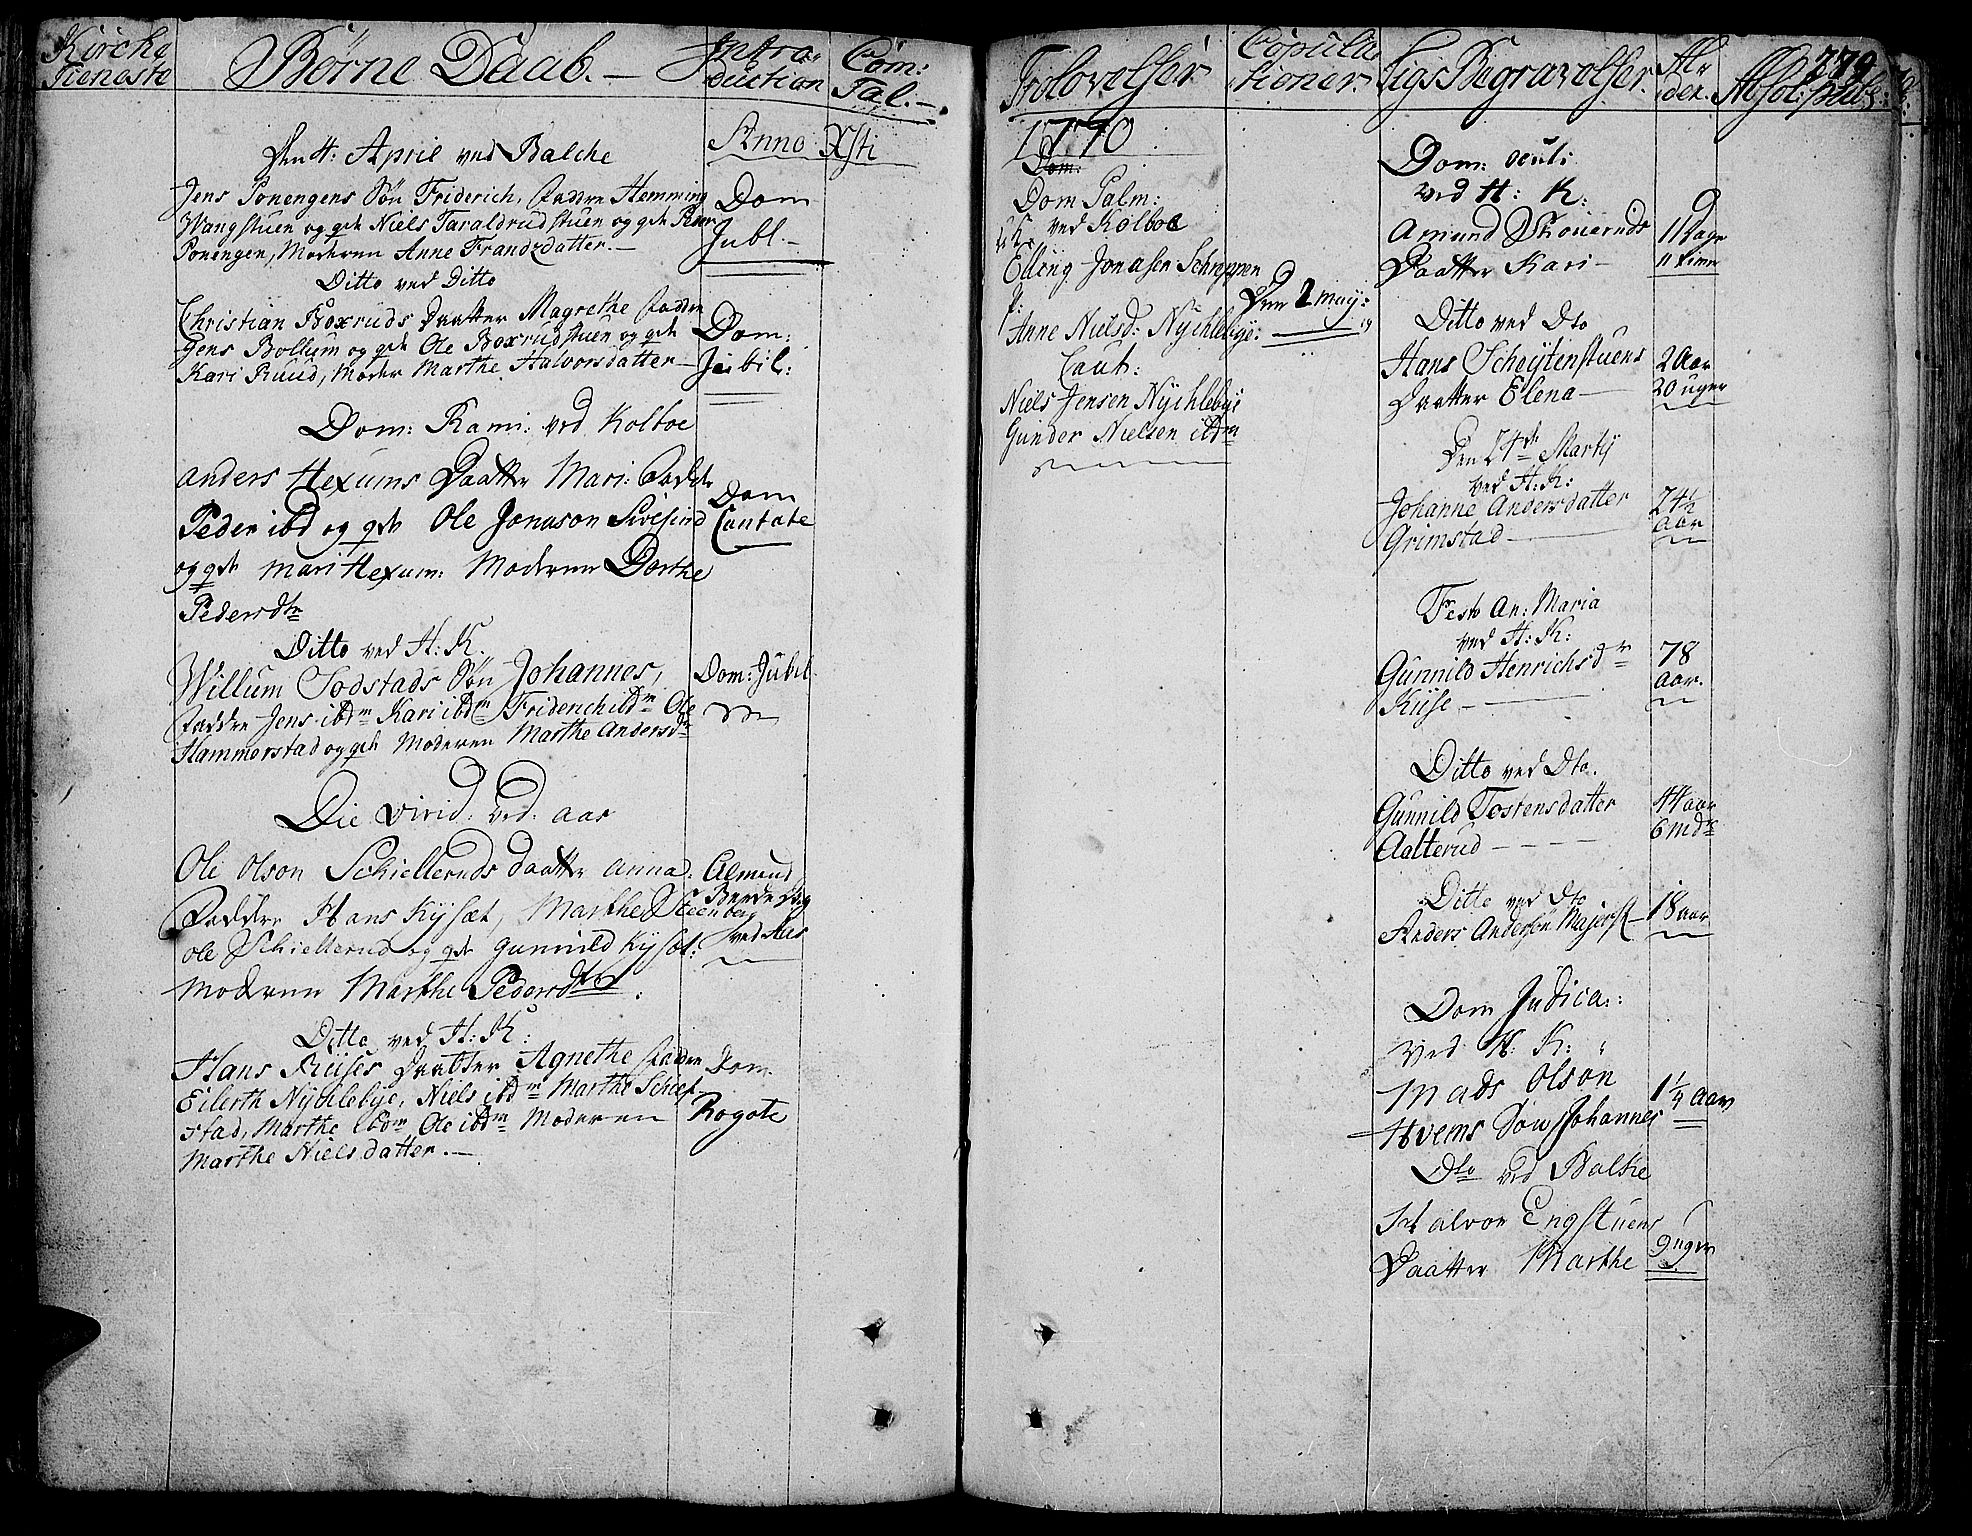 Kirche
Tieneste
Børne Daab. —
Intro-
duction
Com:
Tal. —
Anno Xsti
Den 4: April ved Balche
Jens Ponengens Søn Friderich, Faddre Hemming
Wangstuen og qde Niels Taraldrudstuen og qde
Ponengen, Moderen Anne Frandzdatter. —
Dom
Jubl. —
Ditto ved Ditto
Christian Boxruds Daatter Magrethe Faddre
Jens Bollum og qde Ole Boxrudstuen og qde
Kari Ruud, Moder Marthe Halvorsdatter —
Dom:
Jubil:
Dom: Rami: ved Kolboe
Anders Hexums Daatter Mari: Fadde
Peder ibd og qde Ole Jonason Sivesind
og qde Mari Hexum: Moderen Dorthe
Pedersdtr
Dom
Cantate
Ditto ved H: K.
Willum Sodstads Søn Johannes,
Faddre Jens ibdm Kari ibdm Friderich ibdm Ole
Hammerstad og qde Moderen Marthe Andersdr
Dom: Jubil.
Die Virid: ved Aas
Ole Olson Schielleruds Daatter Anna:
Faddre Hans Kysæt, Marthe Steenberg
Ole Schiellerud og qde Gunnild Kysæt:
Moderen Marthe Pedersdtr
Almind
Beede Dag
ved Aas
Ditto ved H: K:
Hans Kiises Daatter Agnethe Faddre
Eilerth Nychlebye, Niels ibdm Marthe Schief-
stad, Marthe ibdm Ole ibdm Moderen
Marthe Nielsdatter. —
Dom.
Rogate
Trolovelser
Copula
tioner.
Ligs Begravelser.
Al-
der.
Absol: publ:
779
1770
Dom:
Dom Palm:
ved Kolboe
Elling Jonasen Schreppen
p:
Anne Nielsd: Nychlebye:
Caut:
Niels Jensen Nychlebye
Gunder Nielsen ibdm
Den 2 May:
Dom: Oculi
ved H: K:
Amund Skouruds
Daatter Kari —
11 Dage
Ditto ved Dto
Hans Schøytenstuens
Daatter Elena —
2 Aar
20 uger
Den 24de Martij
ved H: K:
Johanne Andersdatter
Grimstad —
74½
Aar
Festo An: Maria
ved H: K:
Gunnild Henrichsdr
Kiise —
78
Aar.
Ditto ved Dto.
Gunnild Tostensdatter
Aalterud —
44 Aar
6 Mdr
Ditto ved Dto
Anders Anderson Majerst —
18 Aar
Dom Judica:
ved H: K:
Mads Olson
Hvems Søn Johannes
1¼ Aar
Dto ved Balke
Halvor Engstuens
Daatter Marthe
9 uger